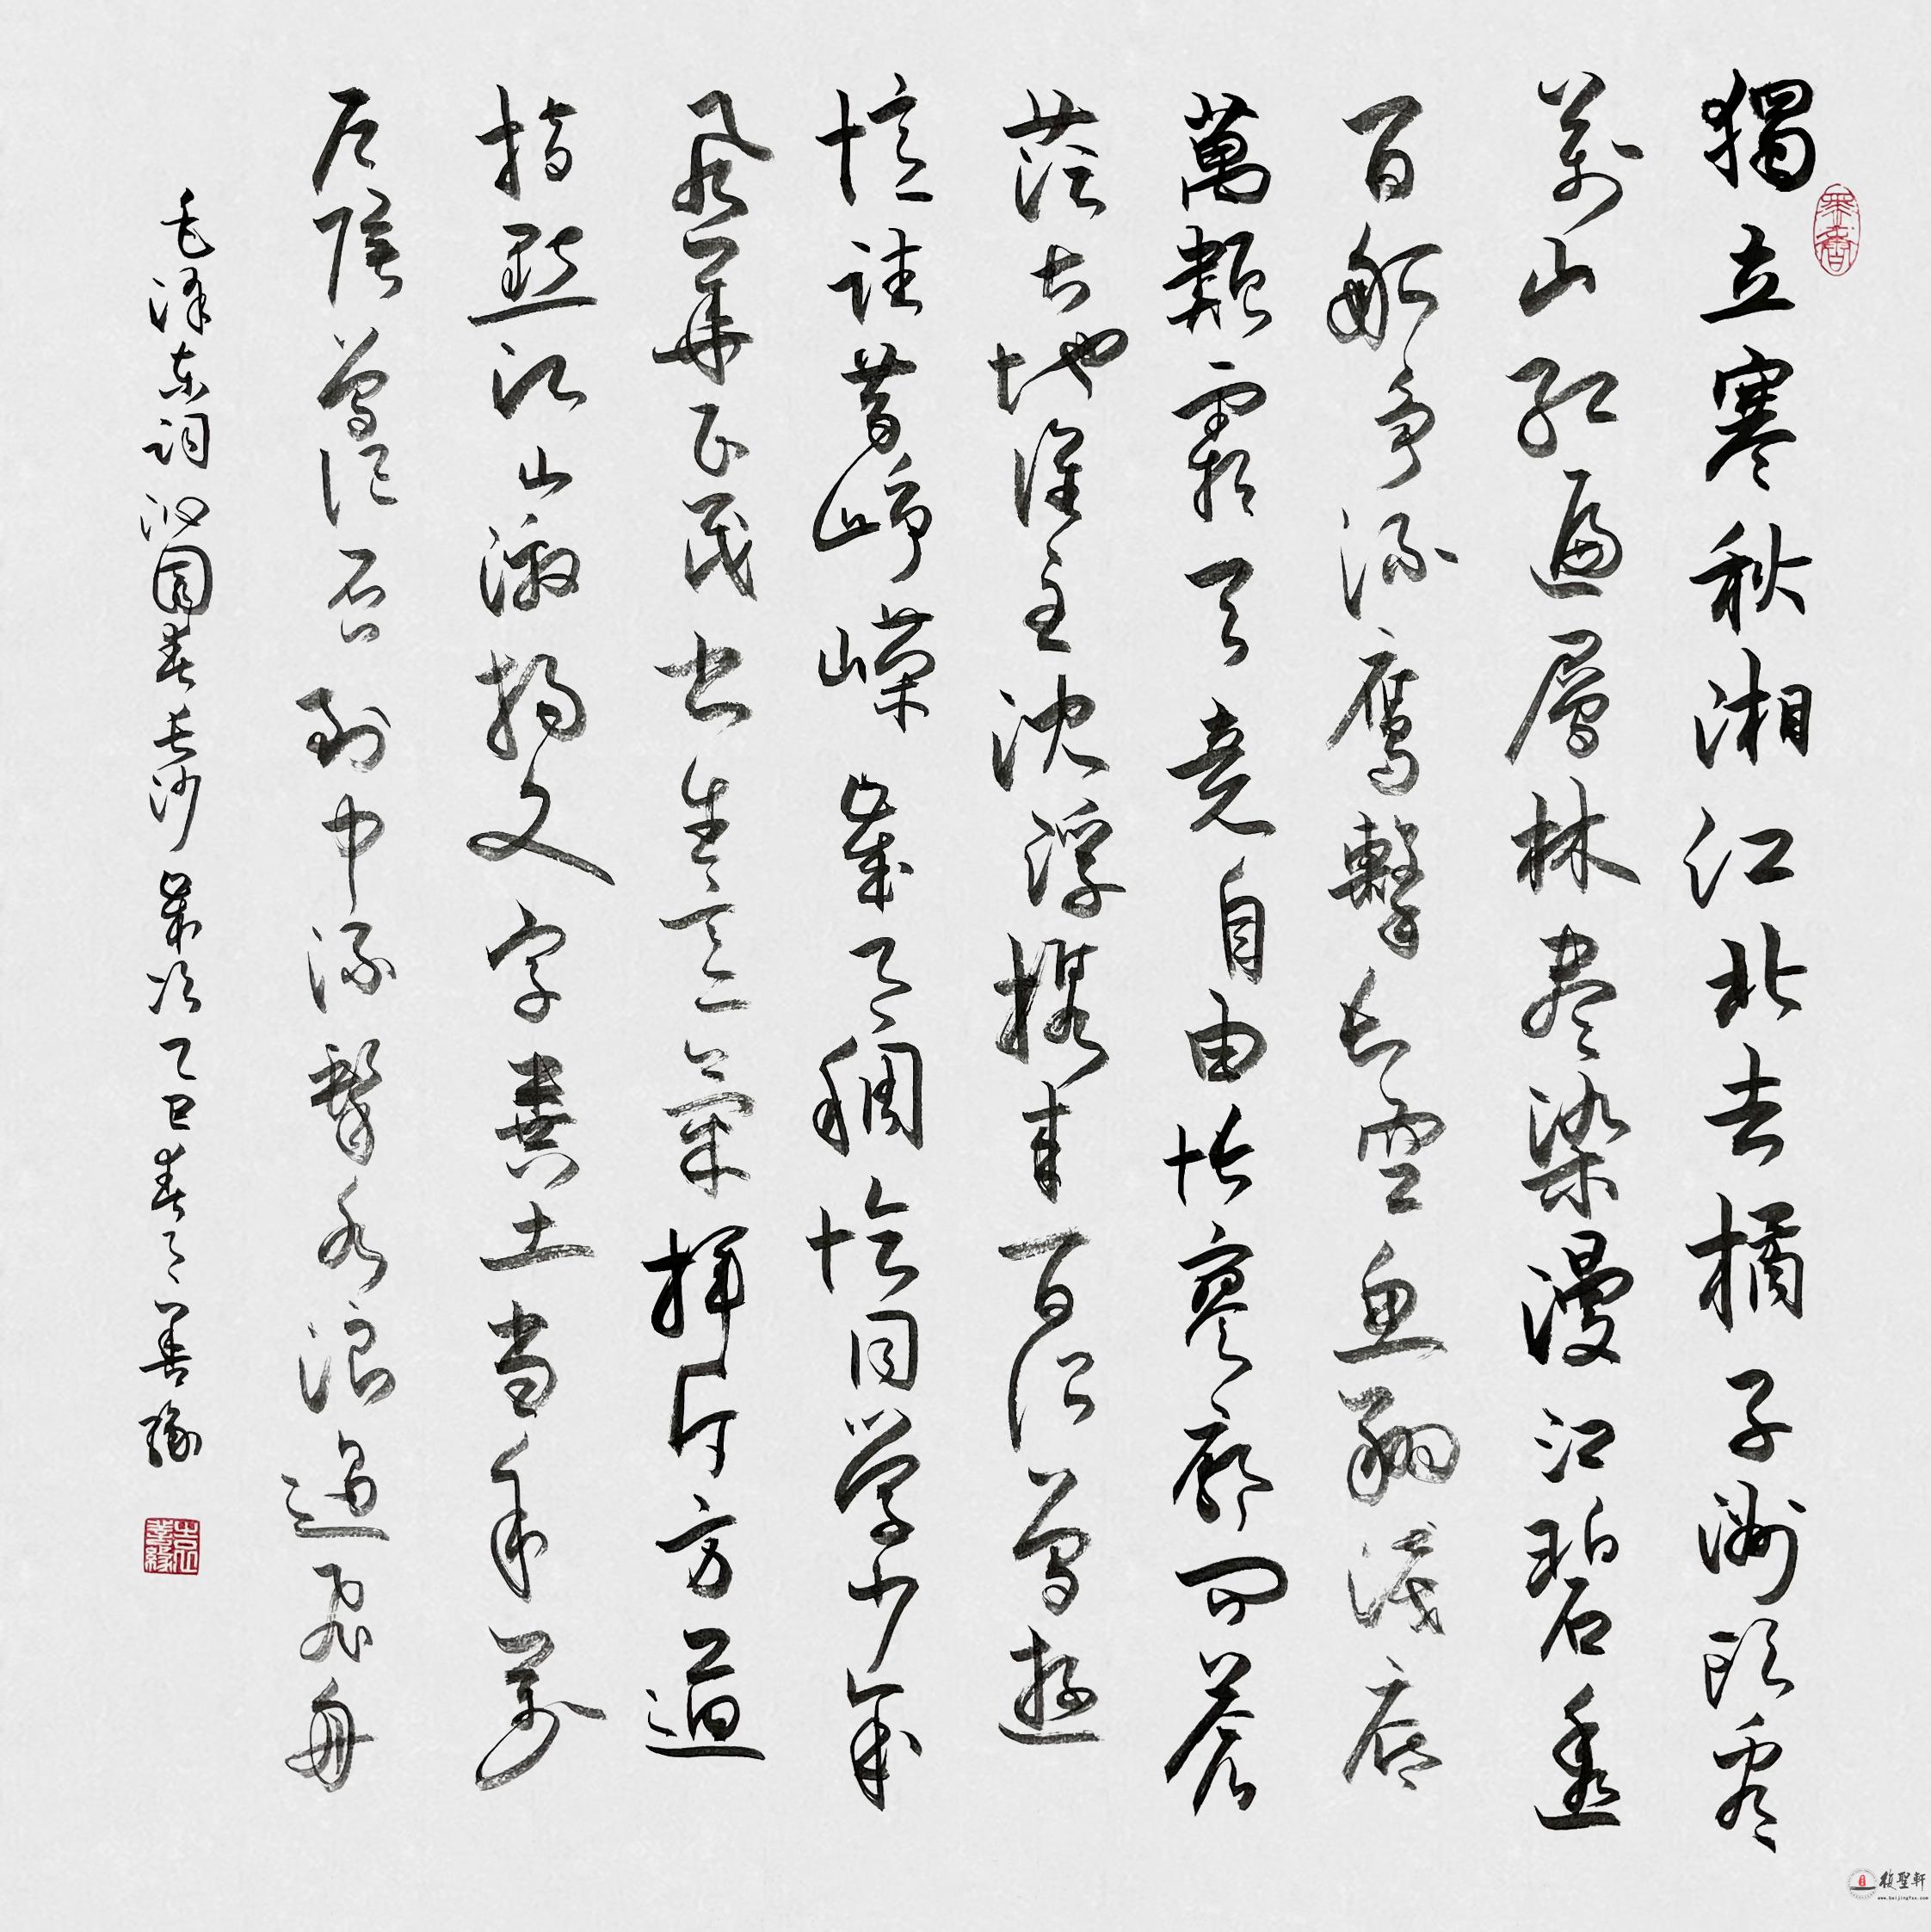 獨立寒秋湘江北去橘子洲頭看
萬山紅遍層林盡染漫江碧透
百舸爭流鷹擊長空魚翔淺底
萬類霜天竞自由悵寥廓問蒼
茫大地誰主沈浮攜來百侶曾遊
憶往昔崢嶸歲月稠恰同學少年
風華正茂書生意氣揮斥方遒
指點江山激揚文字糞土当年萬
戶侯曾記否到中流擊水浪遏飛舟
毛澤東詞沁園春長沙歲次乙巳春月善
復聖軒
www.beijingfsx.com